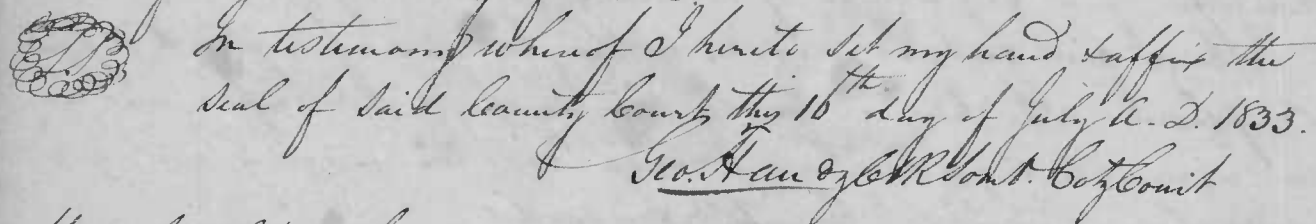 In testimony whereof I hereto set my hand & affix the
seal of said County Court this 16th day of July A. D. 1833.
Geo. Handy Clk Somt. Coty Court